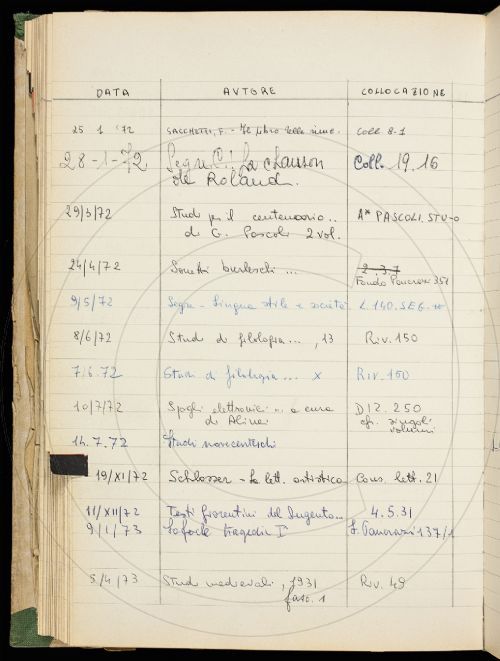 DATA AVTORE COLLOCAZIONE
25 1 '72 SACCHETTI, F. - Il libro delle rime. Coll 8-1
28-1-72. Segre C. La chanson Coll. 19.16
de Roland.
29/3/72 Studi per il centenario.. A* PASCOLI. STU-0
di G. Pascoli 2 vol.
24/4/72 Sonetti burleschi ... 2.37
Fondo Pancrazi 351
9/5/72 Segre - Lingua stile e società L.140.SEG.
8/6/72 Studi di filologia..., 13 Riv. 150
7.6.72 Studi di filologia... x Riv. 150
10/7/72 Spogli elettronici... a cura DIZ. 250
di Alinei cfr. singoli
volumi
14.7.72 Studi novecenteschi
19/XI/72 Schlosser - La lett. artistica Cons. lett. 21
11/XII/72 Testi fiorentini del Dugento... 4.5.31
9/1/73 Sofocle tragedie I° F. Pancrazi 137/1
5/4/73 Studi medievali, 1931 Riv. 49
fasc. 1